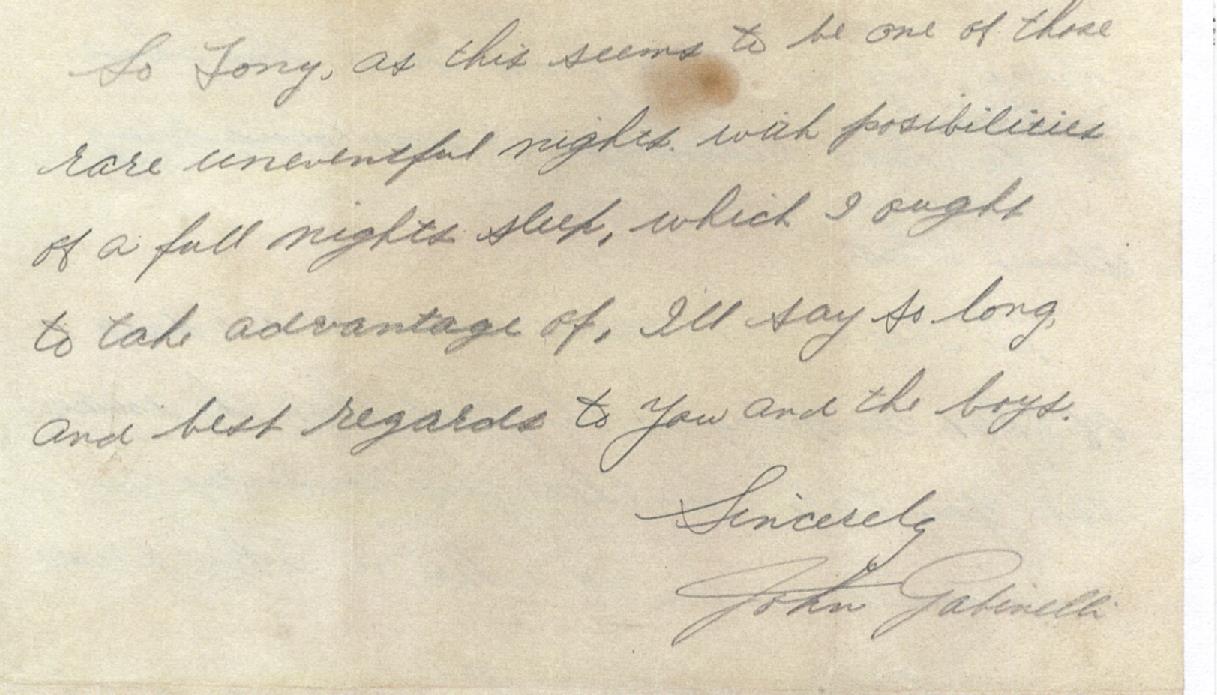 So Tony, as this seems to be one of those
rare uneventful nights. with posibilities
of a full nights sleep, which I ought
to take advantage of, Ill say so long,
and best regards to you and the boys.
Sincerely
John Gabinelli